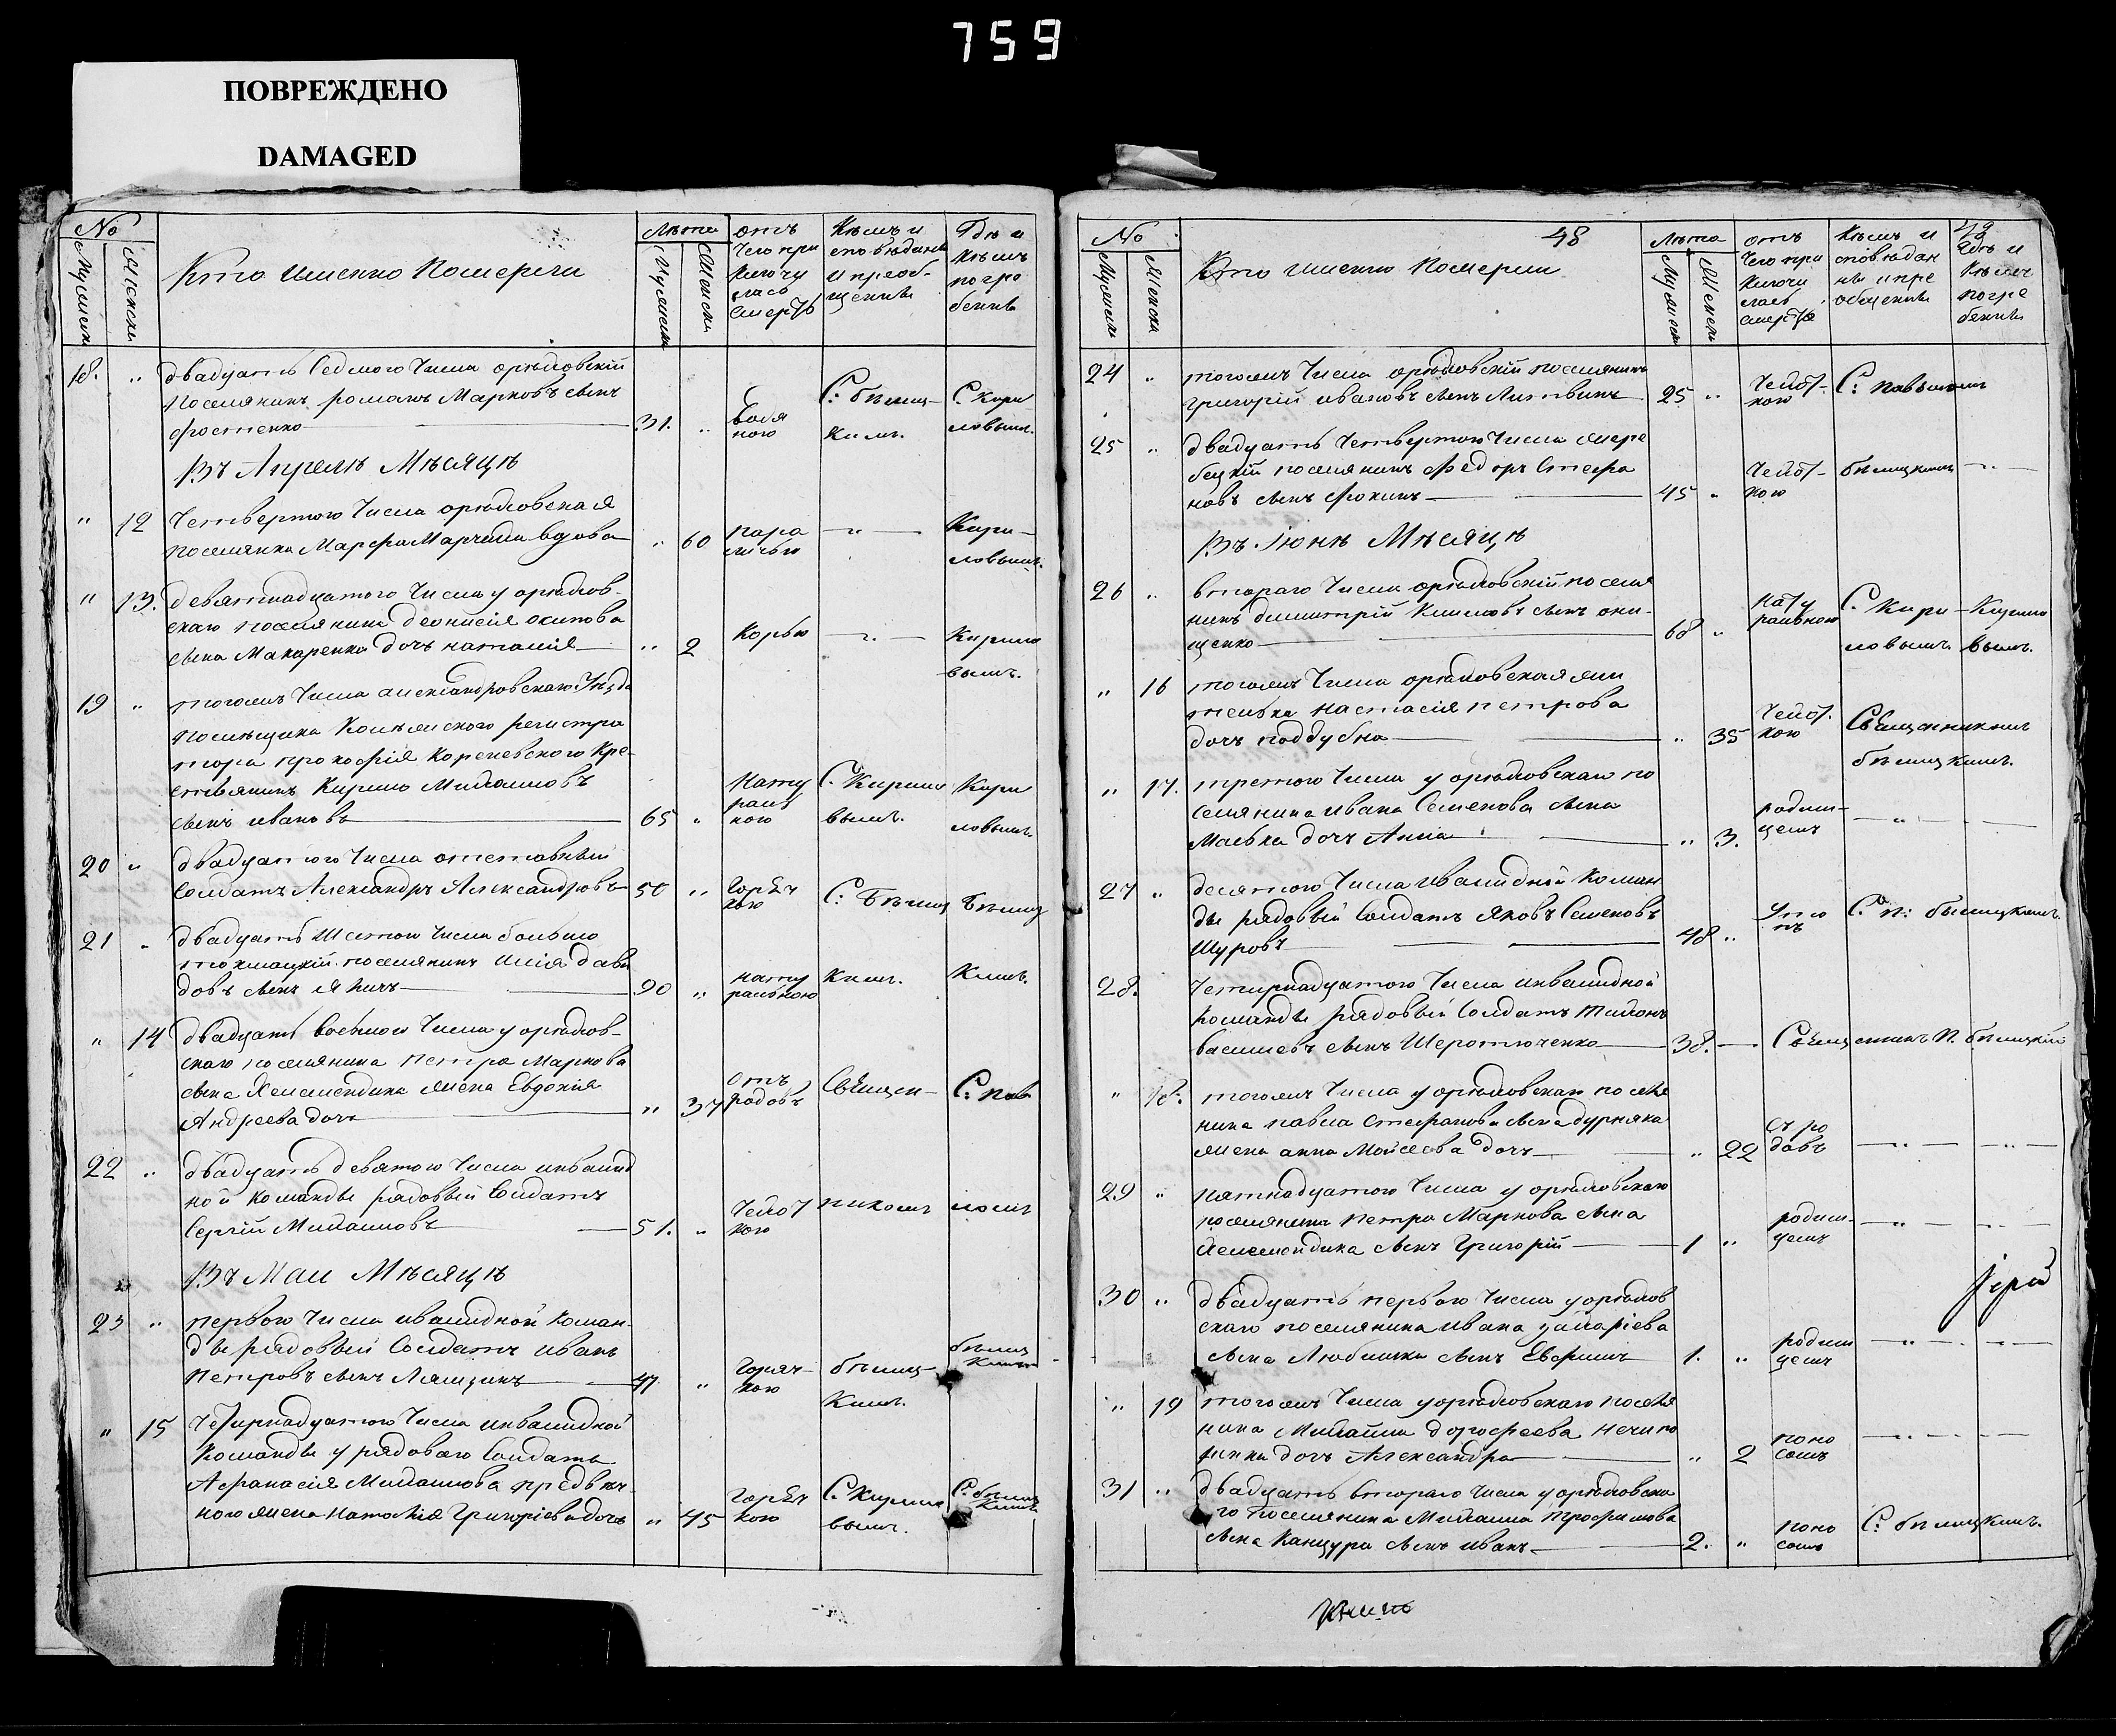 759
ПОВРЕЖДЕНО
DAMAGED
No
Мужеска
Женска
Кто именно Померли
Лѣта
Мужеска
Женска
отъ
Чего при
ключи
лась
смерть
Кѣмъ и
споведаны
и преоб-
щены
Где и
Кѣмъ
погре
бены
18. "
двадцать Седмого Числа орѣховскій
поселянинъ романъ Марковъ сынъ
фостенко
31. "
водя
ною
С. бѣлиц-
кимъ.
С. Кири
ловымъ.
Въ Апрелѣ Мѣсяцѣ
" 12
Четвертого Числа орѣховская
поселянка Марфа вдова
" 60
пара
личью
— " —
Кири-
ловымъ.
" 13.
девятнадцатого Числа у орѣхов-
скаго поселянина деонисія осипова
сына Макаренка дочь наталія
" 2
Корью
— " —
Кирило
вымъ.
19 "
тогожъ Числа александровскаго Уѣзда
помѣщика Колѣжского регистра
тора прокофія Кореневского Кре-
стьянинъ Кирило Михайловъ
сынъ ивановъ
65 "
Нату
раль
ною
С. Кирило
вымъ.
Кири
ловымъ.
20 "
двадцатого Числа отставный
Солдатъ Александръ Александровъ
50 "
горяч
кою
С: Бѣлиц
Бѣлиц
21 "
двадцать Шестого Числа большо
токмацкій поселянинъ илія дави
довъ сынъ
90 "
нату
ральною
Кимъ.
Кимъ.
" 14
двадцать восьмого Числа у орѣхов-
скаго поселянина петра Маркова
сына Желемендика жена Евдокія
Андреева дочь
" 37
отъ
родовъ
Священ-
С. пав
22 "
двадцать девятого Числа инвалид
ной команды рядовый Солдатъ
Сергій Михайловъ
51. "
Чехот
кою
никомъ
ломъ
Въ Маи Мѣсяцѣ
23 "
первого Числа ивалидной Коман-
ды рядовый Солдатъ иванъ
петровъ сынъ Лямцинъ
47 "
Горяч-
кою
бѣлиц-
кимъ.
бѣлиц
кимъ
" 15
Четирнадцатого Числа инвалидной
Команды у рядоваго Солдата
Афанасія Михайлова предвеч-
ного жена наталія Григоріева дочь
" 45
горяч
кою
С. Кирило
вымъ.
С. бѣлиц
кимъ
No
48
49
Мужеска
Женска
Кто именно Померли
Лѣта
Мужеска
Женска
отъ
Чего при
ключи
лась
смерть
Кѣмъ и
споведан
ны и пре
общены
Где и
Кѣмъ
погре
бены
24 "
тогожъ Числа орѣховскій поселянинъ
григорій ивановъ сынъ Литвинъ
25 "
Чехот-
кою
С: павъломъ
25 "
двадцать Четвертого Числа жере
бецкій поселянинъ федоръ Стефа
новъ сынъ фокинъ
45 "
Чехот-
кою
бѣлицкимъ
— " —
Въ Іюнѣ Мѣсяцѣ
26 "
второго Числа орѣховскій поселя
нинъ димитрій Климовъ сынъ они-
щенко
68 "
нату
ральною
С. Кири-
ловымъ.
Кирило
вымъ.
" 16
тогожъ Числа орѣховская жи
телька настасія петрова
дочь поддубна
" 35
Чехот.
кою
Священникомъ
бѣлицкимъ.
" 17.
третого Числа у орѣховскаго по
селянина ивана Семенова сына
Малька дочь Анна
" 3.
родим-
цемъ
— " — —
27 "
десятого Числа ивалидной Коман
ды рядовый Солдатъ Яковъ Семеновъ
Шуровъ
48 "
Уто
пъ
С. п: бѣлицкимъ.
28.
Четирнадцатого Числа инвалидной
команды рядовый Солдатъ Тихонъ
васильевъ сынъ Шеротюченко
38. —
Священникъ П. бѣлицкій
" 18.
тогожъ Числа у орѣховскаго поселя
нина павла стефанова сына дурняка
жена анна Моисеева дочь
" 22
съ ро
довъ
— " — — " —
29 "
пятнадцатого Числа у орѣховскаго
поселянина петра Маркова сына
Желемендика сынъ Григорій
1 "
родим-
цемъ
— " — — " —
Іерей
30 "
двадцать первого Числа у орѣхов
скаго поселянина ивана захаріева
сына Любички сынъ Евфимъ
1. "
родим
цемъ
— " — — " —
" 19
тогожъ Числа у орѣховскаго поселя
нина Михайла дорофеева нечипо
ренка дочь Александра
" 2
поно
сомъ
— " — — " —
31 "
двадцать второго Числа у орѣховска
го поселянина Михайла трофимова
сына Канцура сынъ иванъ
2. "
поно
сомъ
С: бѣлицкимъ.